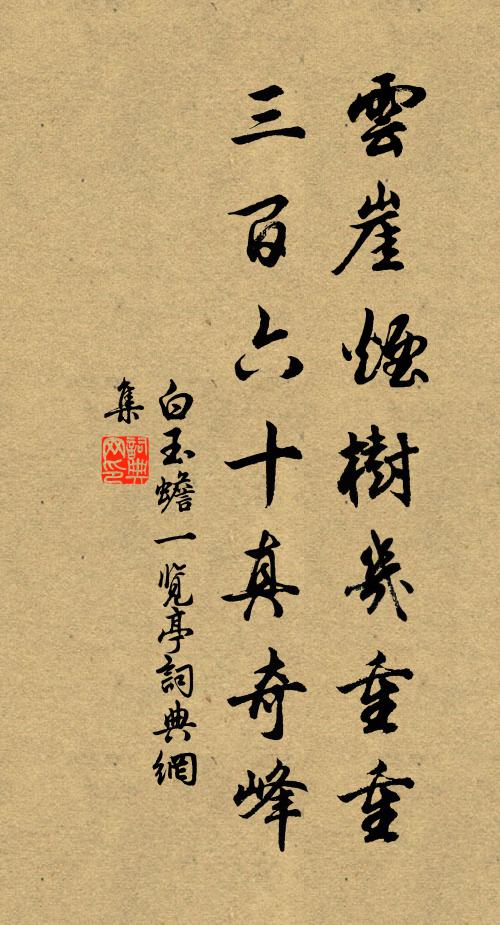 雲崖煙樹幾重重
三百六十真奇峰
白玉蟾一覽亭詞典網
集
詞典网印